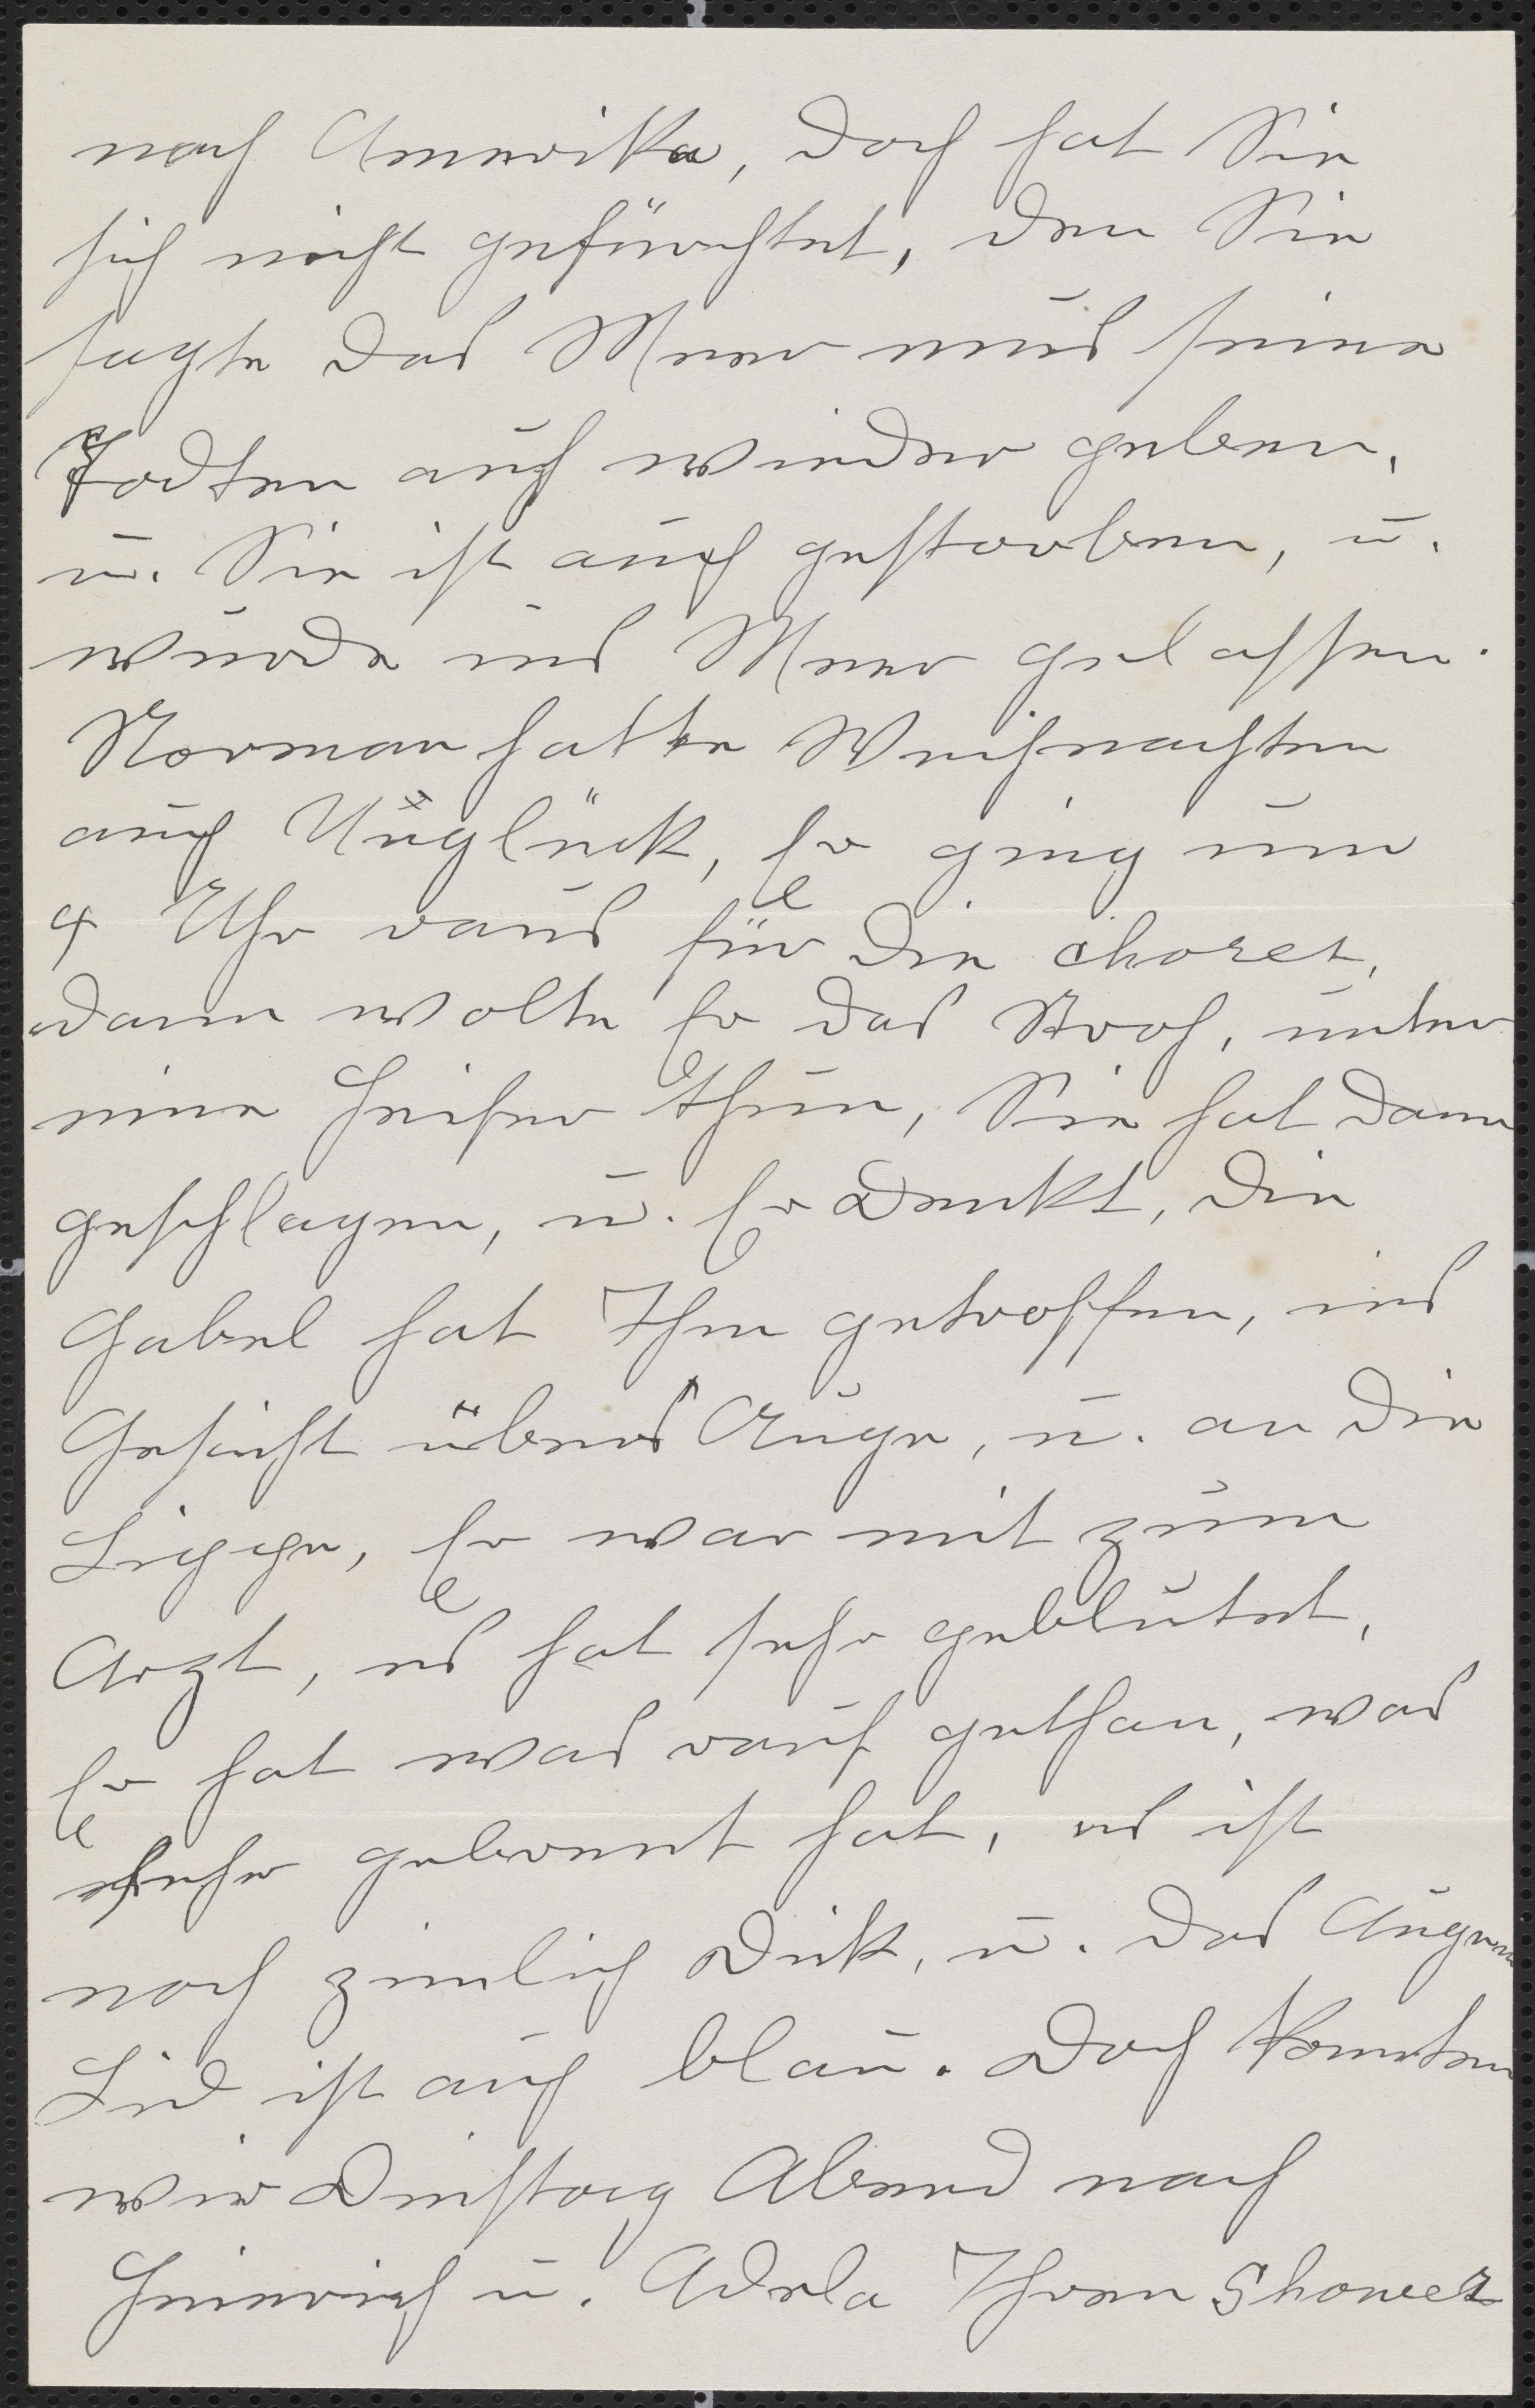 nach Amerika, doch hat Sie
sich nicht gefürchtet, den Sie
sagte das Meer muß seine
Todten auch wieder geben,
u. Sie ist auch gestorben, u.
wurde ins Meer gelassen.
Norman hatte Weihnachten
auch Unglück, Er ging um
4 Uhr raus für die chores,
dann wolte Er das Stroh, unter
eine Heifer thun, Sie hat dann
geschlagen, u. Er denkt, die
Gabel hat Ihm getroffen, ins
Gesicht übers Auge, u. an die
Lippe, Er war mit zum
Arzt, es hat sehr geblutet,
Er hat was rauf gethan, was
sehr gebrent hat, es ist
noch zimlich dick, u. das Augen
Lid ist auch blau. doch konnten
wir Dinstag Abend nach
Heinrich u. Adela Ihren Shower